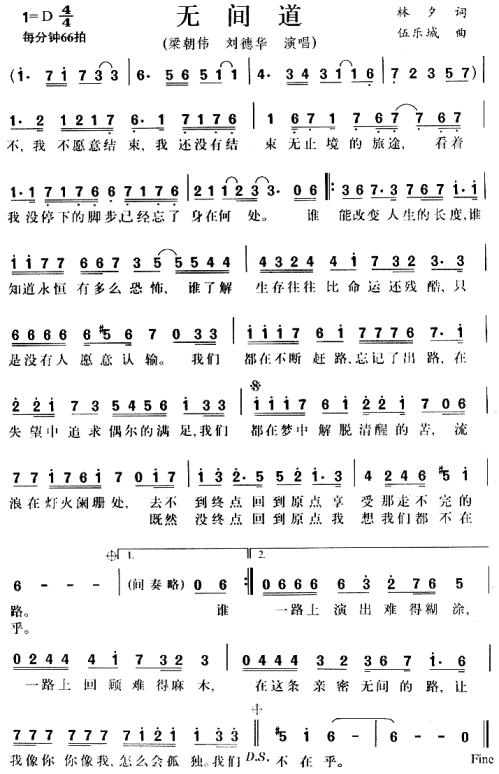 1=D 4/4
每分钟66拍
无间道
(梁朝伟 刘德华 演唱)
林夕 词
伍乐城 曲
(1· 7 1 7 3 3 | 6· 5 6 5 1 1 | 4· 3 4 3 1 1 6 | 7 2 3 5 7)
1· 2 1 2 1 7 6· 1 7 1 7 6 | 1 6 7 1 7 6 7 7 6 7
不, 我 不愿意结 束, 我 还没有结 束 无止 境的 旅途, 看着
1· 1 7 1 7 6 6 7 7 1 7 6 | 2 1 1 2 3 3· 0 6 ‖: 3 6 7· 3 7 6 7 1· 1
我 没停下的脚步,已经忘了 身在何 处。 谁 能改变 人生的长度,谁
1 1 7 7 6 6 7 3 5 5 5 4 4 | 4 3 2 4 4 1 7 3 2 3· 3
知道永恒 有多么 恐怖, 谁了解 生存往往 比命运还残 酷, 只
6 6 6 6 6 #5 6 7 0 3 3 | 1 1 1 7 6 1 7 7 7 6 7· 1
是没有人 愿意认输。 我们 都在不断 赶路,忘记了出路, 在
2 2 1 7 3 5 4 5 6 1 3 3 | 1 1 1 7 6 1 2 2 1 7 0 6
失望中 追求 偶尔的满足,我们 都在梦中 解脱 清醒的 苦, 流
7 7 1 7 6 1 7 0 1 7 | 1 3 2· 5 5 2 1· 3 | 4 2 4 6 #5 1
浪在灯火阑珊处, 去不 到终点 回到原点 享 受那走不 完的
既然 没终点 回到原点 我 想我们都 不在
1. 2.
6 - - - (间奏略) 0 6 :‖ 0 6 6 6 6 3 2 7 6 5
路。 谁 一路上 演出 难得糊涂,
乎。
0 2 4 4 4 1 7 3 2 3 | 0 4 4 4 3 2 3 6 7 1· 6
一路上 回顾 难得麻木, 在这条 亲密 无间的 路, 让
7 7 7 7 7 7 7 1 2 1 1 3 3 ‖ #5 1 6 - | 6 - - 0 ‖
我像你 你像我,怎么会 孤独。我们 D.S. 不在乎。 Fine